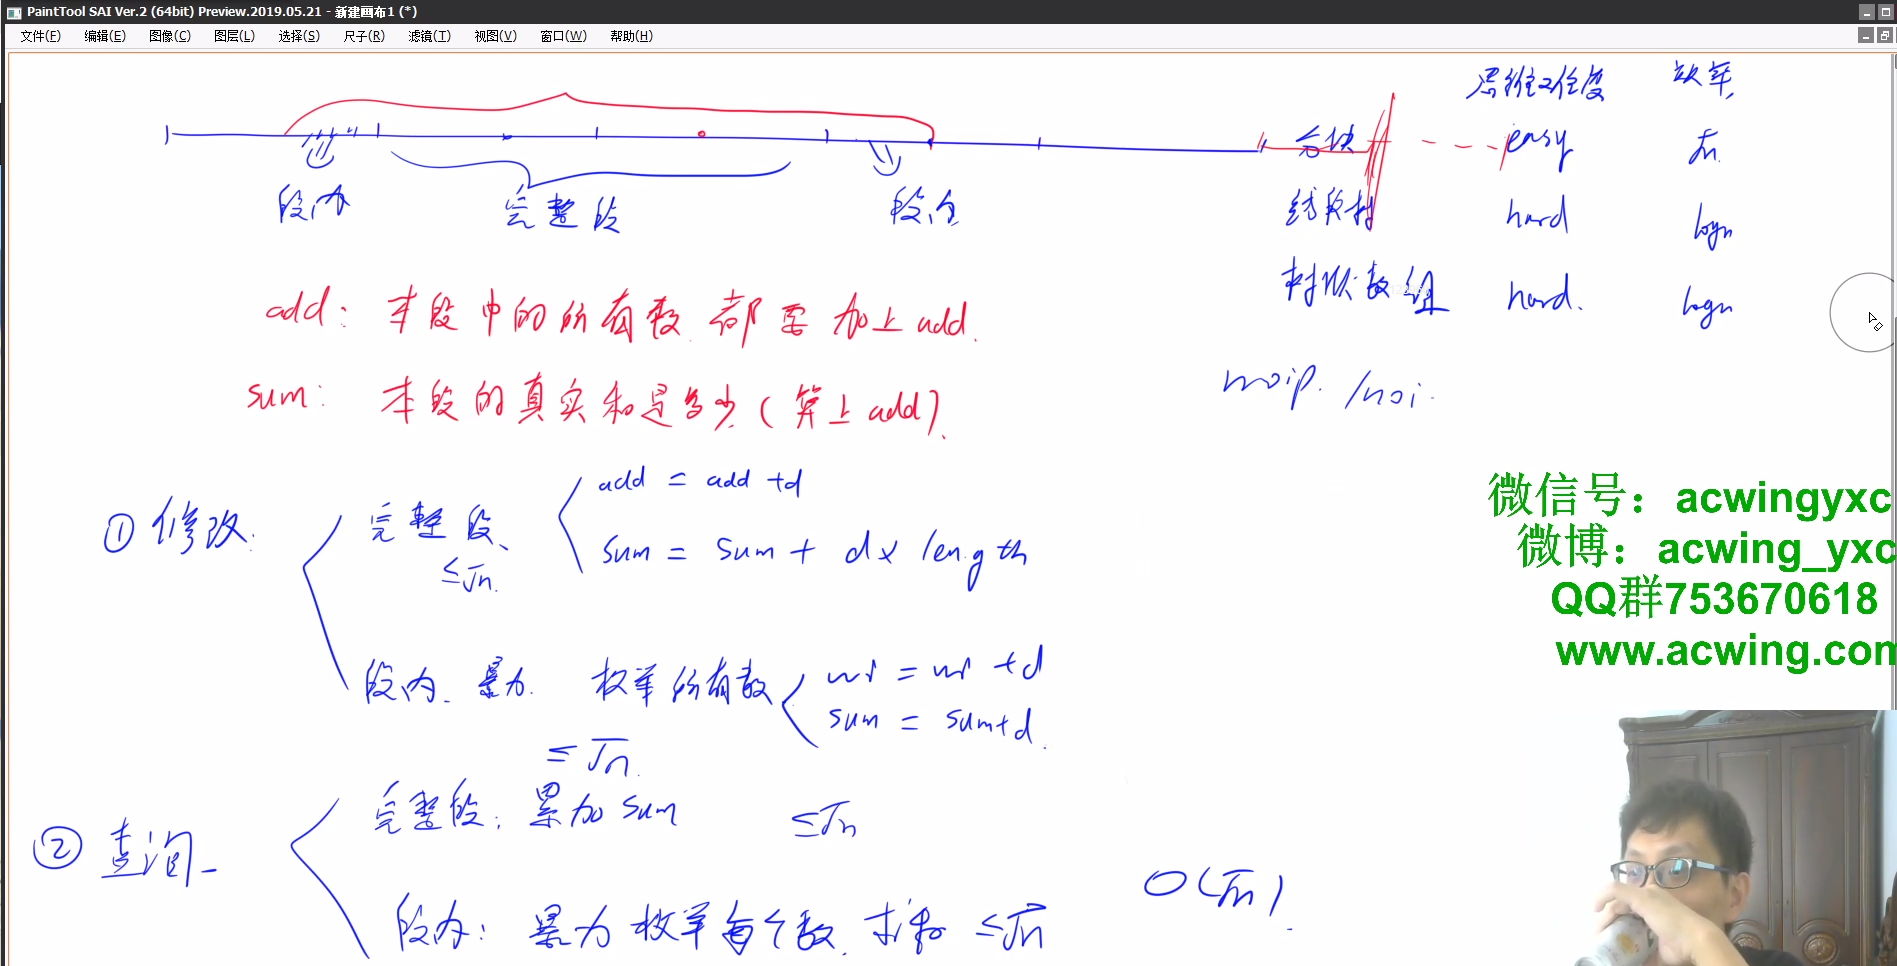 PaintTool SAI Ver.2 (64bit) Preview.2019.05.21 - 新建画布1 (*)
文件(F) 编辑(E) 图像(C) 图层(L) 选择(S) 尺子(R) 滤镜(T) 视图(V) 窗口(W) 帮助(H)
思维难度 效率
分块 easy √n
线段树 hard logn
树状数组 hard. logn
noip. /noi.
段内 完整段 段内
add: 本段中的所有数都要加上add.
sum: 本段的真实和是多少(算上add).
① 修改:
完整段、 ≤√n.
add = add +d
sum = sum + d× length
段内、暴力. 枚举所有数
wi = wi +d
sum = sum+d.
≤√n.
② 查询
完整段: 累加sum ≤√n
段内: 暴力枚举每个数. 求和 ≤√n
O(√n).
微信号：acwingyxc
微博：acwing_yxc
QQ群753670618
www.acwing.com